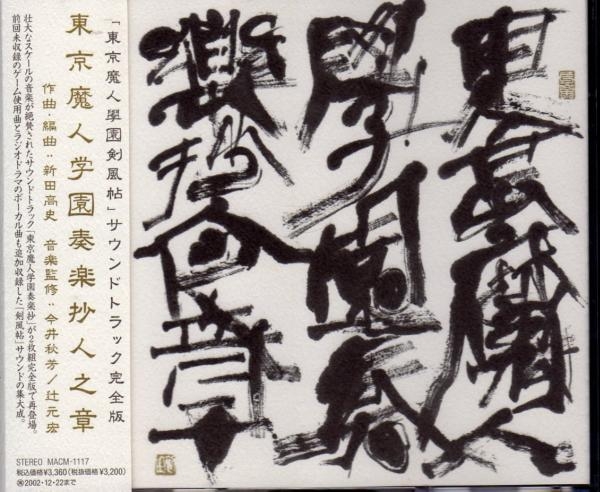 東京魔人
學園奏
樂抄人之章
「東京魔人學園剣風帖」サウンドトラック完全版
東京魔人学園奏楽抄人之章
作曲・編曲:新田高史 音楽監修:今井秋芳/辻元宏
壮大なスケールの音楽が絶賛されたサウンドトラック「東京魔人学園奏楽抄」が2枚組完全版で再登場。
前回未収録のゲーム使用曲とラジオドラマのボーカル曲も追加収録した「剣風帖」サウンドの集大成。
STEREO MACM-1117
税込価格¥3,360(税抜価格¥3,200)
2002・12・22まで